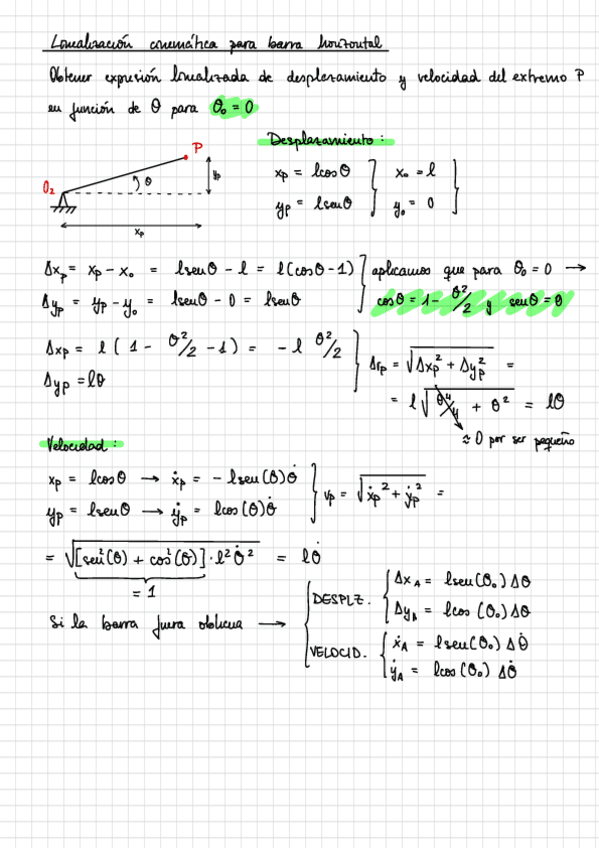 Linealización cinemática para barra horizontal
Obtener expresión linealizada de desplazamiento y velocidad del extremo P
en función de θ para θ₀ = 0
Desplazamiento:
P
O₂
θ
yp
xp
xp = lcosθ } x₀ = l
yp = lsenθ } y₀ = 0
Δxp = xp - x₀ = lsenθ - l = l(cosθ - 1) } aplicamos que para θ₀ = 0 →
Δyp = yp - y₀ = lsenθ - 0 = lsenθ } cosθ = 1 - θ²/2 y senθ = θ
Δxp = l (1 - θ²/2 - 1) = - l θ²/2
Δyp = lθ
Δrp = √(Δxp² + Δyp²) =
= l √(θ⁴/4 + θ²) = lθ
≈ 0 por ser pequeño
Velocidad:
xp = lcosθ → ẋp = - lsen(θ)θ̇ } vp = √(ẋp² + ẏp²) =
yp = lsenθ → ẏp = lcos(θ)θ̇
= √([sen²(θ) + cos²(θ)] · l²θ̇²) = lθ̇
= 1
Si la barra fuera oblicua →
DESPLZ. { ΔxA = lsen(θ₀)Δθ
ΔyA = lcos(θ₀)Δθ
VELOCID. { ẋA = lsen(θ₀)Δθ̇
ẏA = lcos(θ₀)Δθ̇